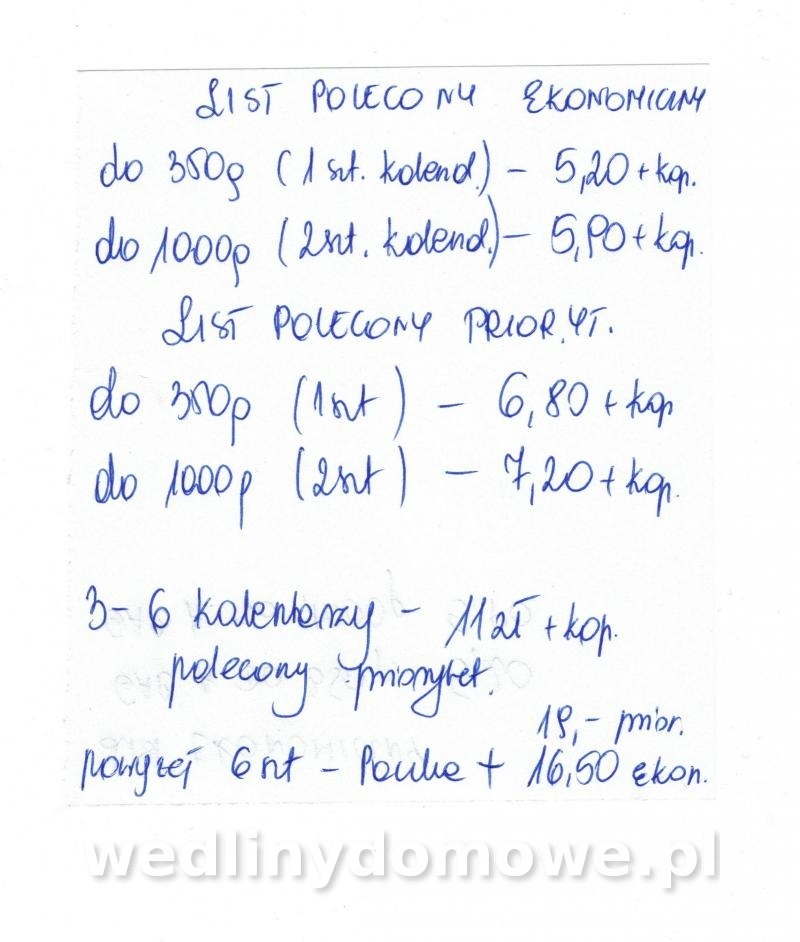 LIST POLECONY EKONOMICZNY
do 350g (1 szt. kalend.) – 5,20 + kop.
do 1000g (2szt. kalend.) – 5,90 + kop.
LIST POLECONY PRIORYT.
do 350g (1szt) – 6,80 + kop
do 1000g (2szt) – 7,20 + kop.
3-6 kalendarzy – 11 zł + kop.
polecony priorytet.
19,- prior.
powyżej 6 szt – Paczka + 16,50 ekon.
wedlinydomowe.pl